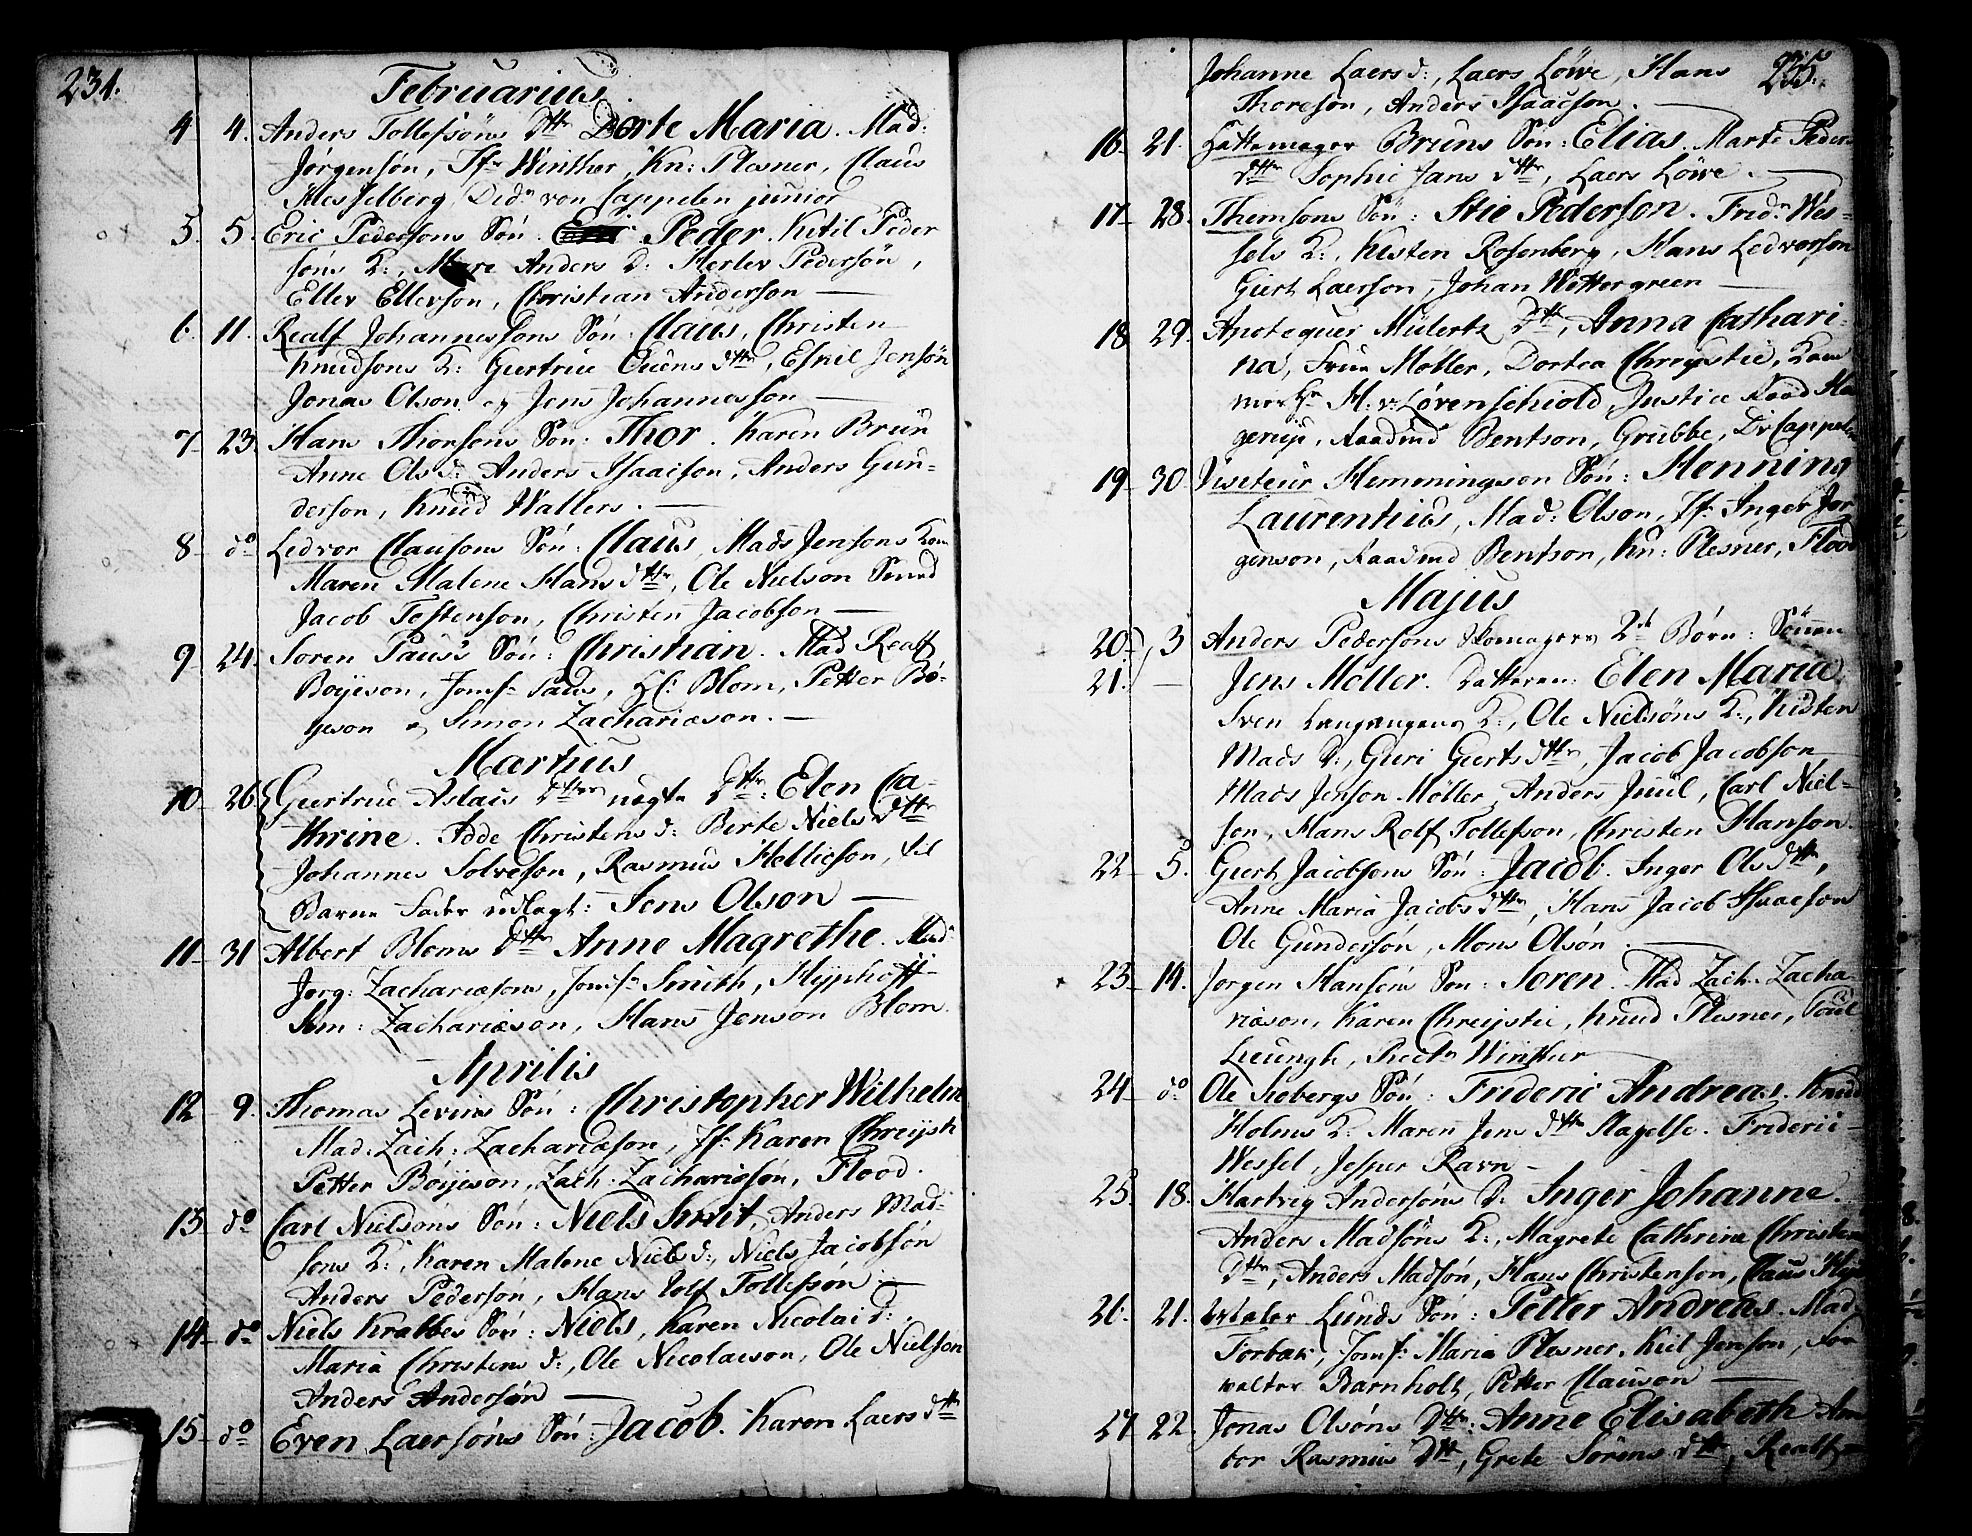 234.
Februarius.
4 4. Anders Tollefsöns Dttr Dorte Maria. Mad:
Jørgensön, Jfr Winther, Kn: Plesner, Claus
Hesselberg, Didr von Cappelen junior
5. 5. Eric Pedersons Sön: Peder. Kitil Peder
söns K:, Anders D: Herlev Pedersön,
Ellev Ellevson, Christian Anderson —
6. 11. Realf Johannessons Sön: Claus, Christen
Knudsons K: Giertrue Oüens dttr, Eskil Jensön
Jonas Olson og Jens Johannesson —
7 23. Hans Thorsens Sön: Thor. Karen Brün
Anne Ols d: Anders Isaacson, Anders Gun-
derson, Knud Wallers. —
8 do Ledvor Clausons Sön: Claus, Mads Jensons Kone
Maren Malene Hans dttr, Ole Nielson Smed
Jacob Testenson, Christen Jacobson —
9 24. Soren Paus's Sön: Christian. Mad Realf
Boyeson, Jomfr Paus, Hl: Blom, Petter Bö-
yeson og Simon Zachariæson. —
Martius
10 26. Giertrue Aslais Dtter uægte Dttr: Elen Ca-
thrine. Idde Christens d: Berte Niels dttr
Johannes Solveson, Rasmus Hellieson, til
Barne Fader udlagt: Jens Olson —
11 31 Albert Bloms Dttr Anne Magrethe. Mad:
Jørg: Zachariæsons, Jomfr Smith, Hyphoff
Sim: Zachariæson, Hans Jenson Blom.
Aprilis
12 9. Thomas Levins Sön: Christopher Wilhelm
Mad. Zach: Zachariæson, Jfr Karen Chreyst
Petter Böyeson, Zach: Zachariæsön, Flood.
13 do Carl Nielsöns Sön: Niels Smit, Anders Mad-
sons K:, Karen Malene Niels d:, Niels Jacobsön
Anders Pedersön, Hans Rolf Tollefsön —
14 do Niels Krabbes Sön: Niels, Karen Nicolai d:
Maria Christens d:, Ole Nicolaison, Ole Nielson
Anders Andersön —
15 do Even Laersöns Sön: Jacob. Karen Laers dttr
235.
Johanne Laers d:, Laers Löwe, Hans
Thoreson, Anders Isaacson. —
16 21. Hattemager Bruns Sön: Elias. Marte Peders
dttr Sophie Jans dttr, Laers Löwe. —
17 28. Thomsons Sön: Stie Pederson. Fridr Wes-
sels K:, Kisten Rosenberg, Hans Ledvorson
Giert Laerson, Johan Wettergreen —
18 29. Apotequer Mülertz Dttr, Anna Cathari-
na, Frue Möller, Dortea Chreystie, Kam
mer Hr H: v: Lövenschiold, Justice Raad Ha
gerup, Raadmd Bentson, Grubbe, D: v Cappelen
19 30 Visiteur Hemmingson Sön: Henning
Laurentius, Mad: Olson, Jfr Inger Jør
genson, Raadmd Bentson, Kn: Plesner, Flood
Majus
20 3 Anders Pedersons Skomagers 2de Börn: Sönnen
21. — Jens Møller. Datteren: Elen Maria.
Sven Langangens K:, Ole Nielsöns K:, Kisten
Mads d:, Guri Gierts dttr, Jacob Jacobson
Mads Jenson Möller, Anders Juul, Carl Niel-
son, Hans Rolf Tollefson, Christen Hanson.
22 5. Giert Jacobsons Sön: Jacob. Inger Ols dttr,
Anne Maria Jacobs dttr, Hans Jacob Isaacson
Ole Gundersön, Mons Olsön. —
23 14. Jørgen Hansöns Sön: Soren. Mad Zach. Zacha-
riæson, Karen Chreystie, Knud Plesner, Poul
Lieungh, Winther
24 do Ole Soebergs Sön: Frideric Andreas. Knud
Holms K: Maren Jens dttr Slagelse. Frideric
Wessel, Jesper Ravn —
25. 18. Hartvig Andersöns D: Inger Johanne.
Anders Madsöns K:, Magrete Cathrine Christens
Dttr, Anders Madsön, Hans Christenson, Claus
26. 21. Lunds Sön: Petter Andreas. Mad
Forbak, Jomfr Maria Plesner, Kiel Jenson, For
walter Barnholt, Petter Clauson —
27 22. Jonas Olsöns Dttr: Anne Elisabeth
bor Rasmus Dttr, Grete Sörens dttr, Realf